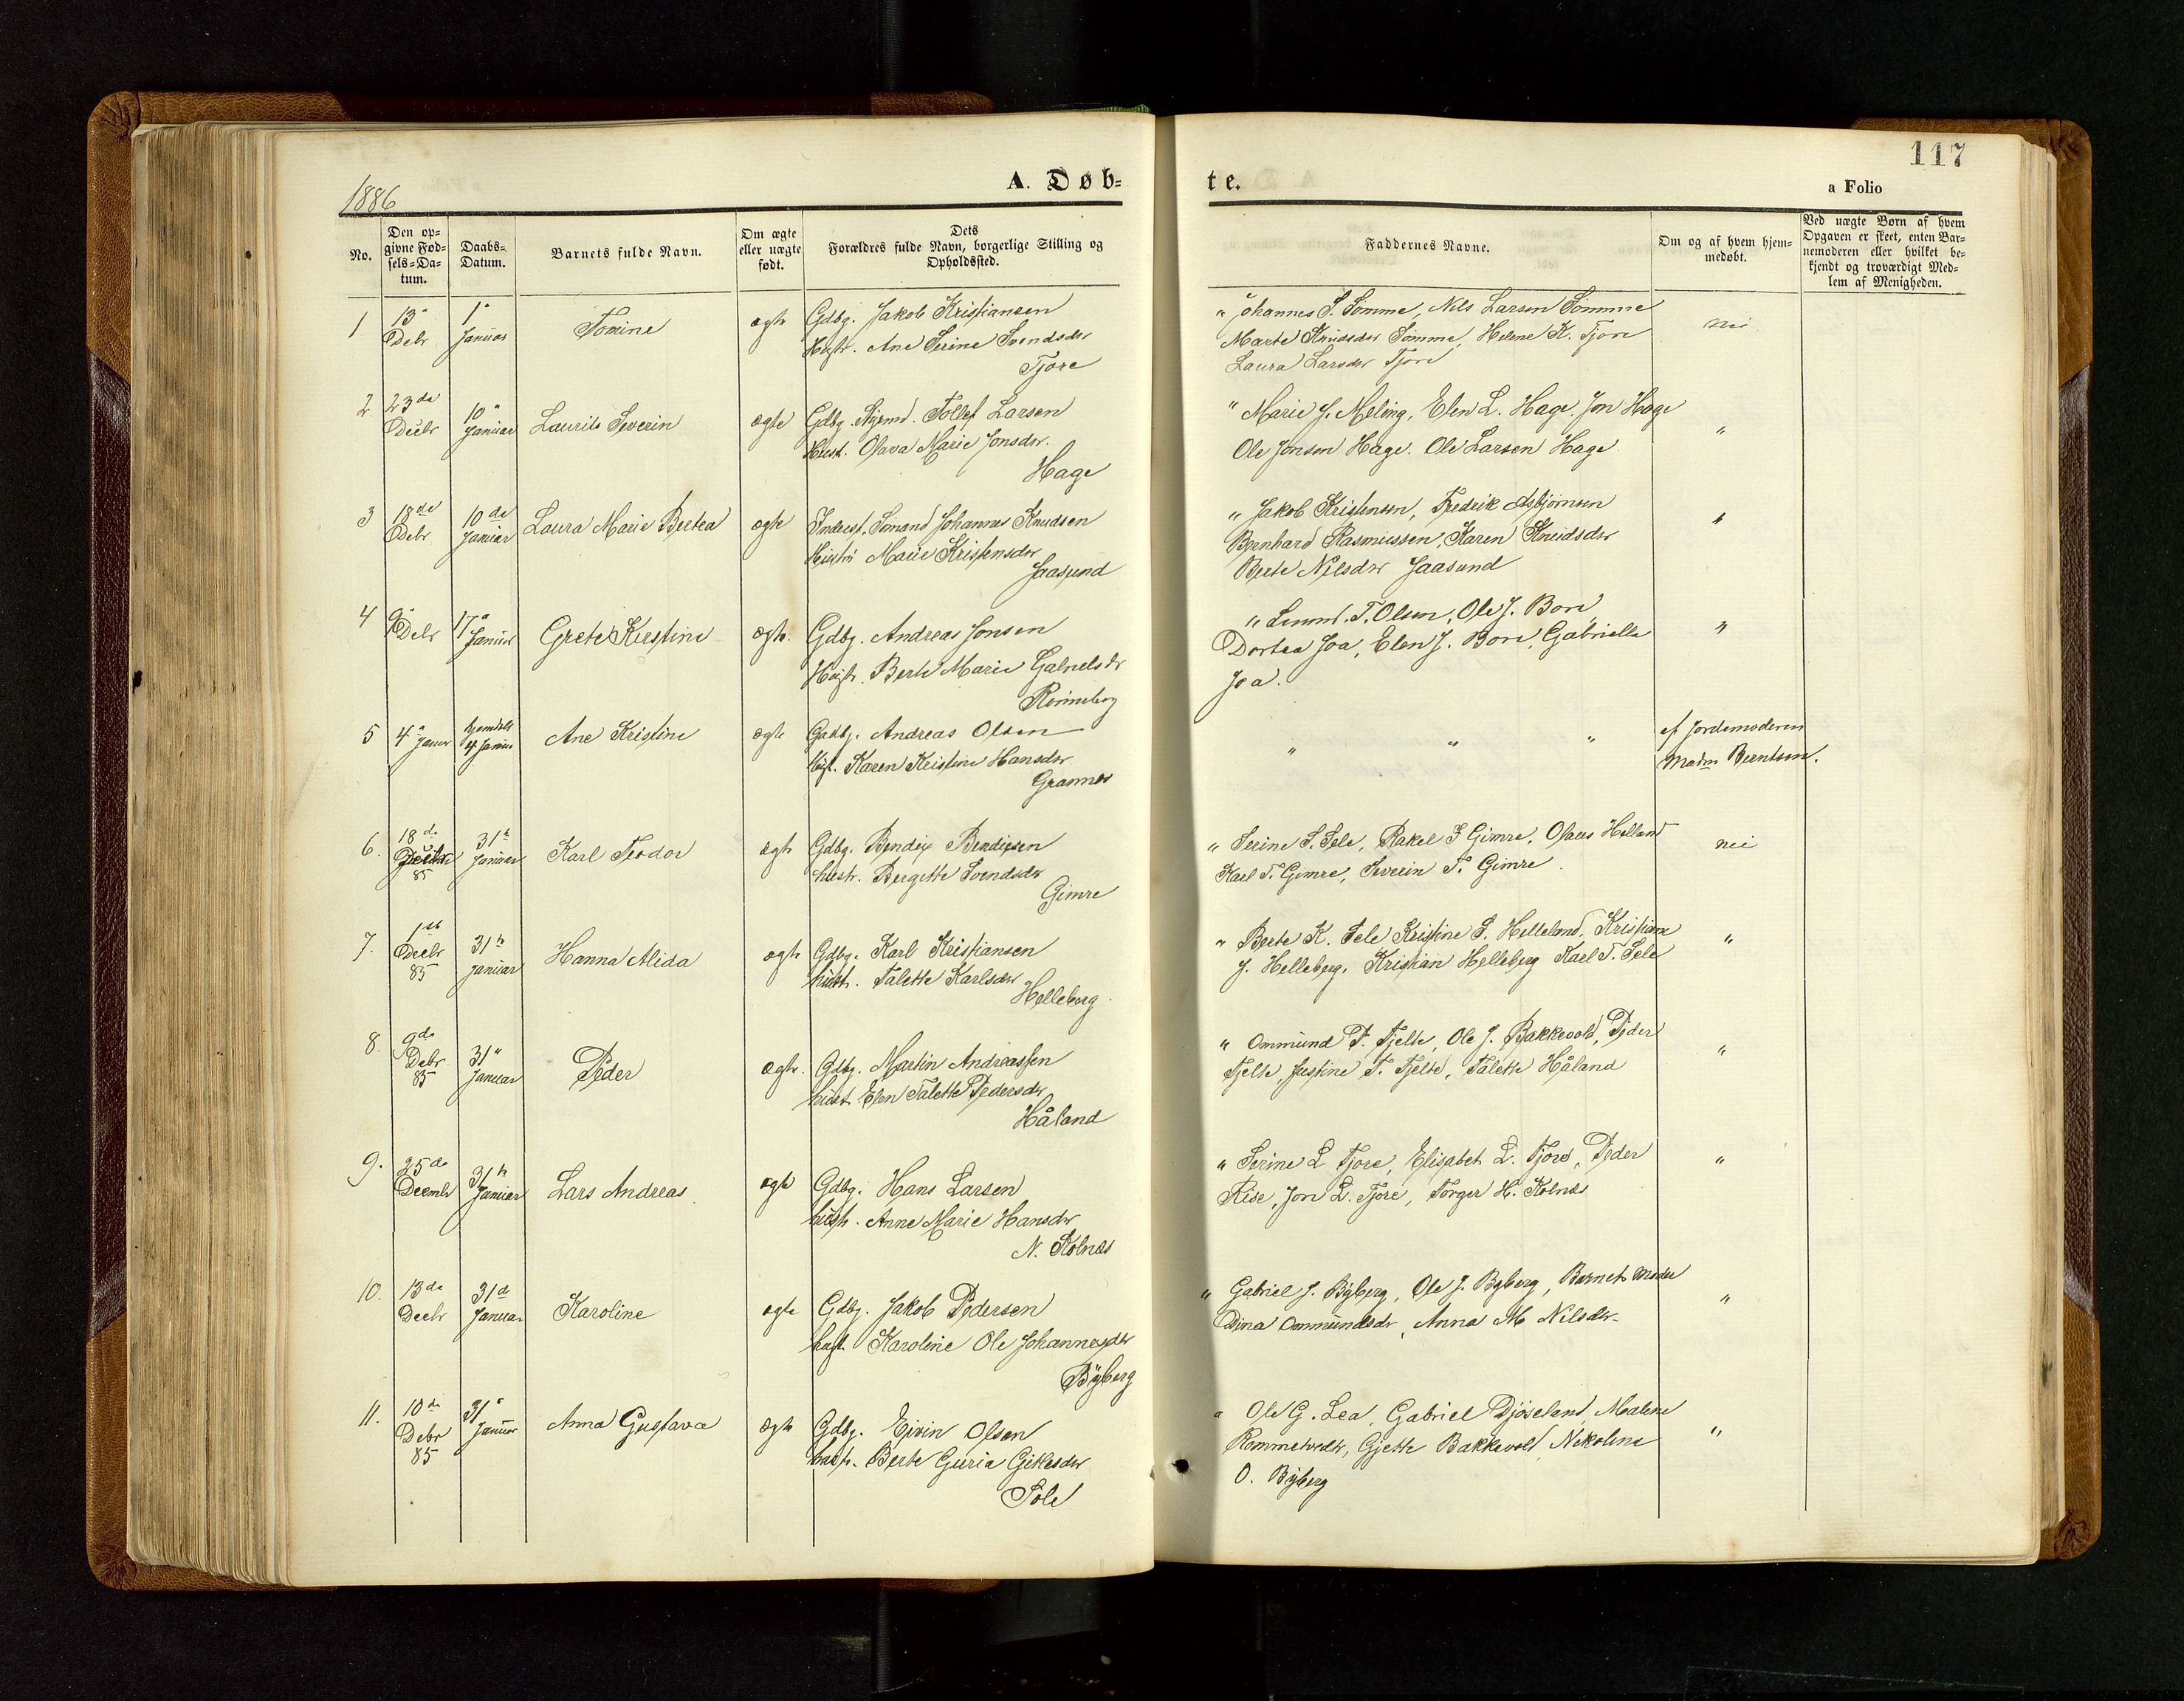 117
1886
A. Døb=
te.
a Folio
No.
Den op=
givne Fød=
sels=Da=
tum.
Daabs=
Datum.
Barnets fulde Navn.
Om ægte
eller uægte
født.
Dets
Forældres fulde Navn, borgerlige Stilling og
Opholdssted.
Faddernes Navne.
Om og af hvem hjem=
medøbt.
Ved uægte Børn af hvem
Opgaven er skeet, enten Bar=
nemoderen eller hvilket be=
kjendt og troværdigt Med=
lem af Menigheden.
1
13"
Debr
1"
Januar
Tomine
ægte
Gdbg. Jakob Kristiansen
Hustr. Ane Serine Svendsdr
Tjore
" Johannes S. Sømme, Nils Larsen Sømme
Marte Knudsdr Sømme, Helene K. Tjore
Laura Larsdr Tjore
nei
2
23de
Decbr
10"
Januar
Laurits Severin
ægte
Gdbg. Tollef Larsen
Hust. Olava Marie Jonsdr.
Hage
" Marie J. Meling, Elen L. Hage. Jon Hage
Ole Jonsen Hage. Ole Larsen Hage
"
3
18de
Debr
10de
Januar
Laura Marie Bertea
ægte
Inderst, Sømand Johannes Knudsen
Hustr Marie Kristensdr
Jaasund
" Jakob Kristensen, Fredrik Asbjørnsen
Bernhard Rasmussen, Karen Knudsdr
Berte Nilsdr Jaasund
"
4
9"
Debr
17"
Januar
Grete Kirstine
ægte.
Gdbg. Andreas Jonsen
Hustr. Berte Marie Gabrielsdr
Rønneberg
" T. Olsen, Ole J. Bore
Dortea Joa, Elen J. Bore, Gabrielle
Joa.
"
5
4" Januar
hjemdøbt
4 Januar
Ane Kristine
ægte
Gaardbg. Andreas Olsen
Hust. Karen Kristine Hansdr
Grannes
" " "
af Jordemoderen
Madm Berntsen.
6.
18de
Decbr
85
31te
Januar
Karl Teodor
ægte
Gdbg. Bendix Bendixen
hustr. Bergitte Svendsdr
Gimre
" Serine S. Sele, Rakel S Gimre, Olaus Helland
Karl T. Gimre, Severin T. Gimre.
nei
7.
1ste
Decbr
85
31te
Januar
Hanna Alida
ægte
Gdbg. Karl Kristiansen
hustr. Talette Karlsdr
Helleberg.
" Berte K. Sele Kristine S. Helleland, Kristiane
J. Helleberg. Kristian Helleberg Karl T. Sele
"
8.
9de
Debr
85
31"
Januar
Peder
ægte.
Gdbg. Martin Andreassen
hust Elen Talette Pedersdr
Håland
" Ommund P. Tjelte, Ole J. Bakkevold, Peder
Tjelte, Justine T. Tjelte, Talette Håland
"
9.
25de
Decmbr
31te
Januar
Lars Andreas
ægte
Gdbg. Hans Larsen
hustr. Anne Marie Hansdr
N. Kolnes
" Serine L Tjore, Elisabet L. Tjore, Peder
Risa, Jon L. Tjore, Torger H. Kolnes
"
10.
13de
Decbr
31d
Januar
Karoline
ægte
Gdbg. Jakob Pedersen
hust. Karoline Ole Johannesdr
Byberg
" Gabriel J. Byberg, Ole J. Byberg, Barnets Moder
Dina Ommundsdr, Anna M Nilsdr.
"
11.
10de
Debr
85
31"
Januar
Anna Gustava
ægte
Gdbg. Eivin Olsen
hustr. Berte Guria Gitlesdr
Sole
" Ole G. Lea, Gabriel Djøseland, Malene
Rommetvedt, Gjette Bakkevold, Nikoline
O. Byberg
"